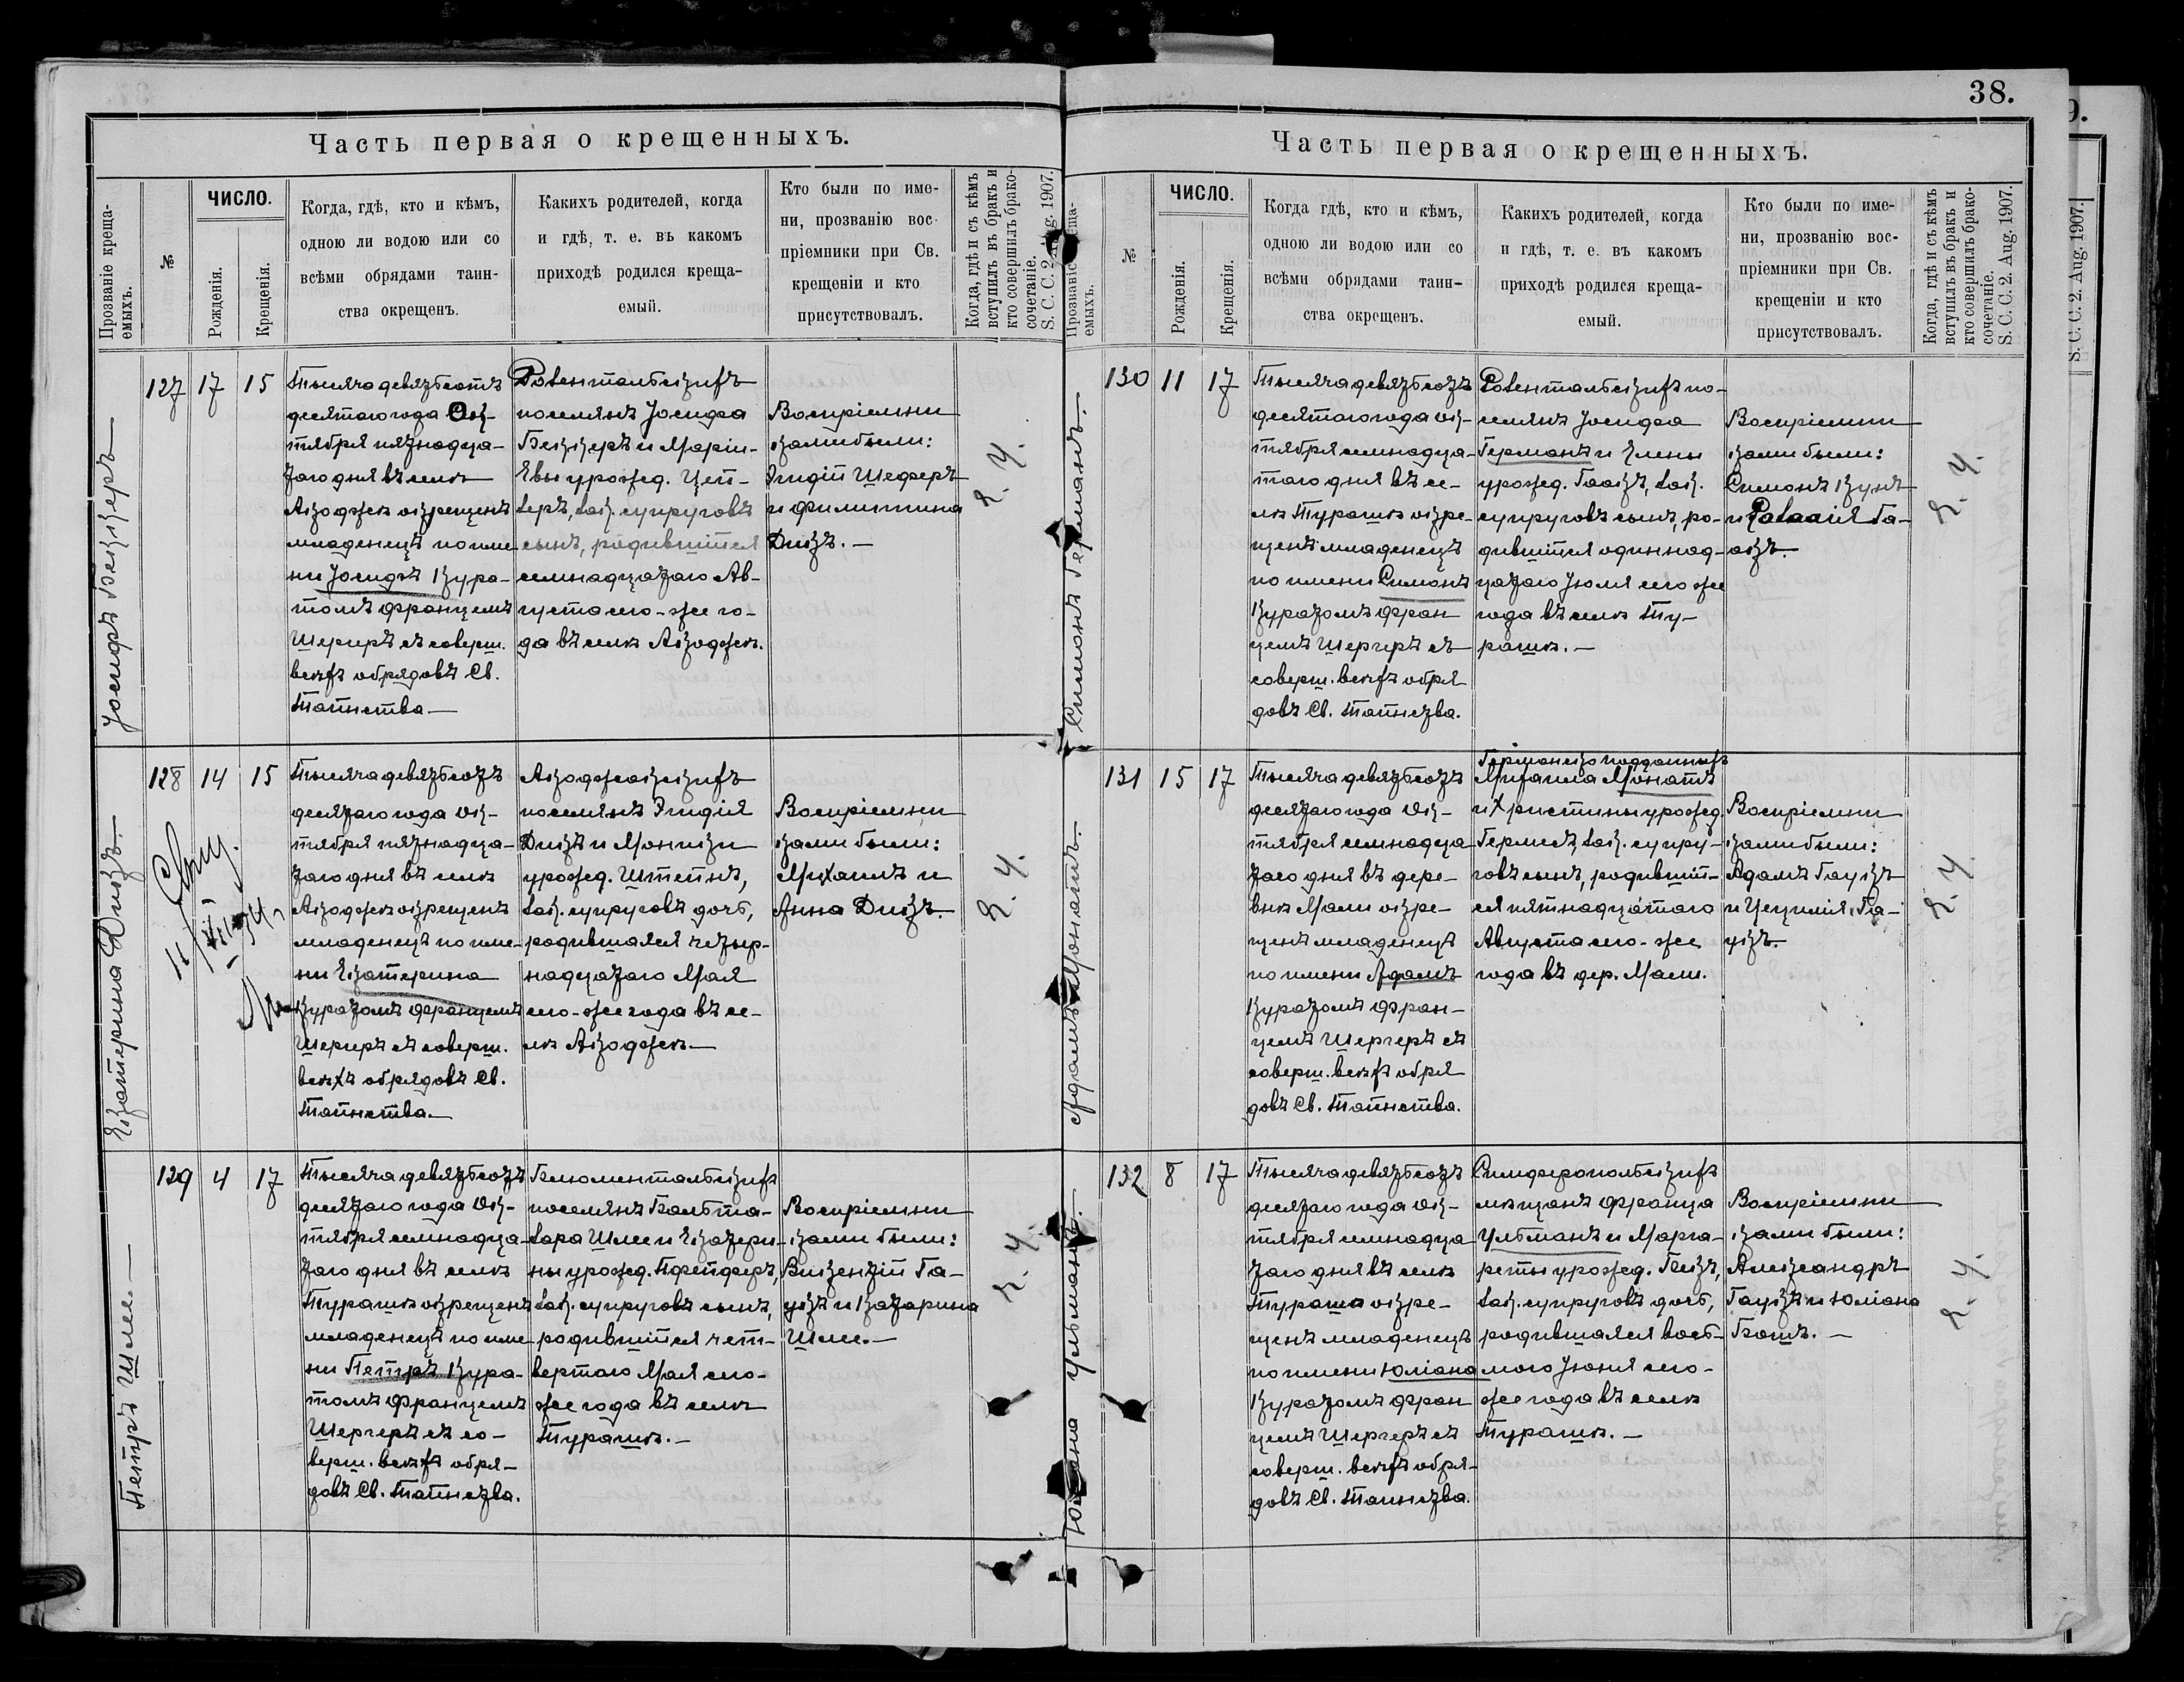 38.
Часть первая о крещенныхъ.
Прозваніе креща-
емыхъ.
№
ЧИСЛО.
Рожденія.
Крещенія.
Когда, гдѣ, кто и кѣмъ,
одною ли водою или со
всѣми обрядами таин-
ства окрещенъ.
Какихъ родителей, когда
и гдѣ, т. е. въ какомъ
приходѣ родился креща-
емый.
Кто были по име-
ни, прозванію вос-
пріемники при Св.
крещеніи и кто
присутствовалъ.
Когда, гдѣ и съ кѣмъ
вступилъ въ бракъ и
кто совершилъ брако-
сочетаніе.
S. C. C. 2 Aug. 1907.
Іосифъ Беккеръ
127
17
15
Тысяча девятьсотъ
десятаго года Ок-
тября пятнадца-
таго дня въ селѣ
Акоджекъ окрещенъ
младенецъ по име-
ни Іосифъ Кура-
томъ Францемъ
Шергеръ съ соверш.
всѣхъ обрядовъ Св.
Таинства—
Розентальскихъ
поселянъ Іосифа
Беккеръ и Маріи-
Евы урожд. Цей-
леръ, зак. супруговъ
сынъ, родившійся
семнадцатаго Ав-
густа сего-же го-
да въ селѣ Акоджек.
Воспріемни
ками были:
Эгидій Шеферъ
и Филиппина
Дикъ.—
Екатерина Дикъ.
128
14
15
Тысяча девятьсотъ
десятаго года Ок-
тября пятнадца-
таго дня въ селѣ
Акоджекъ окрещенъ
младенецъ по име-
ни Екатерина
Куратомъ Францемъ
Шергеръ съ соверш.
всѣхъ обрядовъ Св.
Таинства.—
Акоджакскихъ
поселянъ Эгидія
Дикъ и Моники
урожд. Штейнъ,
зак. супруговъ дочь,
родившаяся четыр-
надцатаго Мая
сего-же года въ се-
лѣ Акоджек.—
Воспріемни
ками были:
Михаилъ и
Анна Дикъ.
Петръ Шлее.—
129
4
17
Тысяча девятьсотъ
десятаго года Ок-
тября семнадца-
таго дня въ селѣ
Турашъ окрещенъ
младенецъ по име
ни Петръ Кура-
томъ Францемъ
Шергеръ съ со-
верш. всѣхъ обря-
довъ Св. Таинства.
Блюментальских
поселянъ Бальта-
зара Шлее и Екатери-
ны урожд. Пфейферъ,
зак. супруговъ сынъ,
родившійся чет-
вертаго Мая сего-
же года въ селѣ
Турашъ.—
Воспріемни
ками были:
Викентій Га-
укъ и Катарина
Шлее.—
Часть первая о крещенныхъ.
емыхъ.
№
ЧИСЛО.
Рожденія.
Крещенія.
Когда гдѣ, кто и кѣмъ,
одною ли водою или со
всѣми обрядами таин-
ства окрещенъ.
Какихъ родителей, когда
и гдѣ, т. е. въ какомъ
приходѣ родился креща-
емый.
Кто были по име-
ни, прозванію вос-
пріемники при Св.
крещеніи и кто
присутствовалъ.
Когда, гдѣ и съ кѣмъ
вступилъ въ бракъ и
кто совершилъ брако-
сочетаніе.
S. C. C. 2. Aug. 1907.
Симонъ Германъ.
130
11
17
Тысяча девятьсотъ
десятаго года Ок-
тября семнадца-
таго дня въ се-
лѣ Турашъ окре-
щенъ младенецъ
по имени Симонъ
Куратомъ Фран
цемъ Шергеръ съ
соверш. всѣхъ обря
довъ Св. Таинства.
Розентальскихъ по-
селянъ Іосифа
Германъ и Елены
урожд. Гаакъ, зак.
супруговъ сынъ, ро-
дившійся одиннад-
цатаго Іюля сего же
года въ селѣ Ту-
рашъ.—
Воспріемни
ками были:
Симонъ Кунъ
и Розалія Га-
акъ.
131
15
17
Тысяча девятьсотъ
десятаго года Ок-
тября семнадца
таго дня въ дере-
внѣ Мали окре-
щенъ младенецъ
по имени Адамъ
Куратомъ Фран-
цемъ Шергеръ съ
соверш. всѣхъ обря
довъ Св. Таинства.
Германско подданныхъ
Михаила Монатъ
и Христины урожд.
Гермесъ, зак. супру-
говъ сынъ, родивший-
ся пятнадцатаго
Августа сего-же
года въ дер. Мали.
Воспріемни
ками были:
Адамъ Гаукъ
и Цецилія Га-
укъ.
Юліана Ульманъ.
132
8
17
Тысяча девятьсотъ
десятаго года Ок-
тября семнадца
таго дня въ селѣ
Тураша окре-
щенъ младенецъ
по имени Юліана
Куратомъ Фран
цемъ Шергеръ съ
соверш. всѣхъ обря-
довъ Св. Таинства.
Симферопольских
мѣщанъ Франца
Ульманъ и Марга-
реты урожд. Бекъ,
зак. супруговъ дочь,
родившаяся вось-
мого Іюня сего-
же года въ селѣ
Турашъ.—
Воспріемни
ками были:
Александръ
Гаукъ и Юліана
Бошъ.—
9.
S. C. C. 2. Aug. 1907.